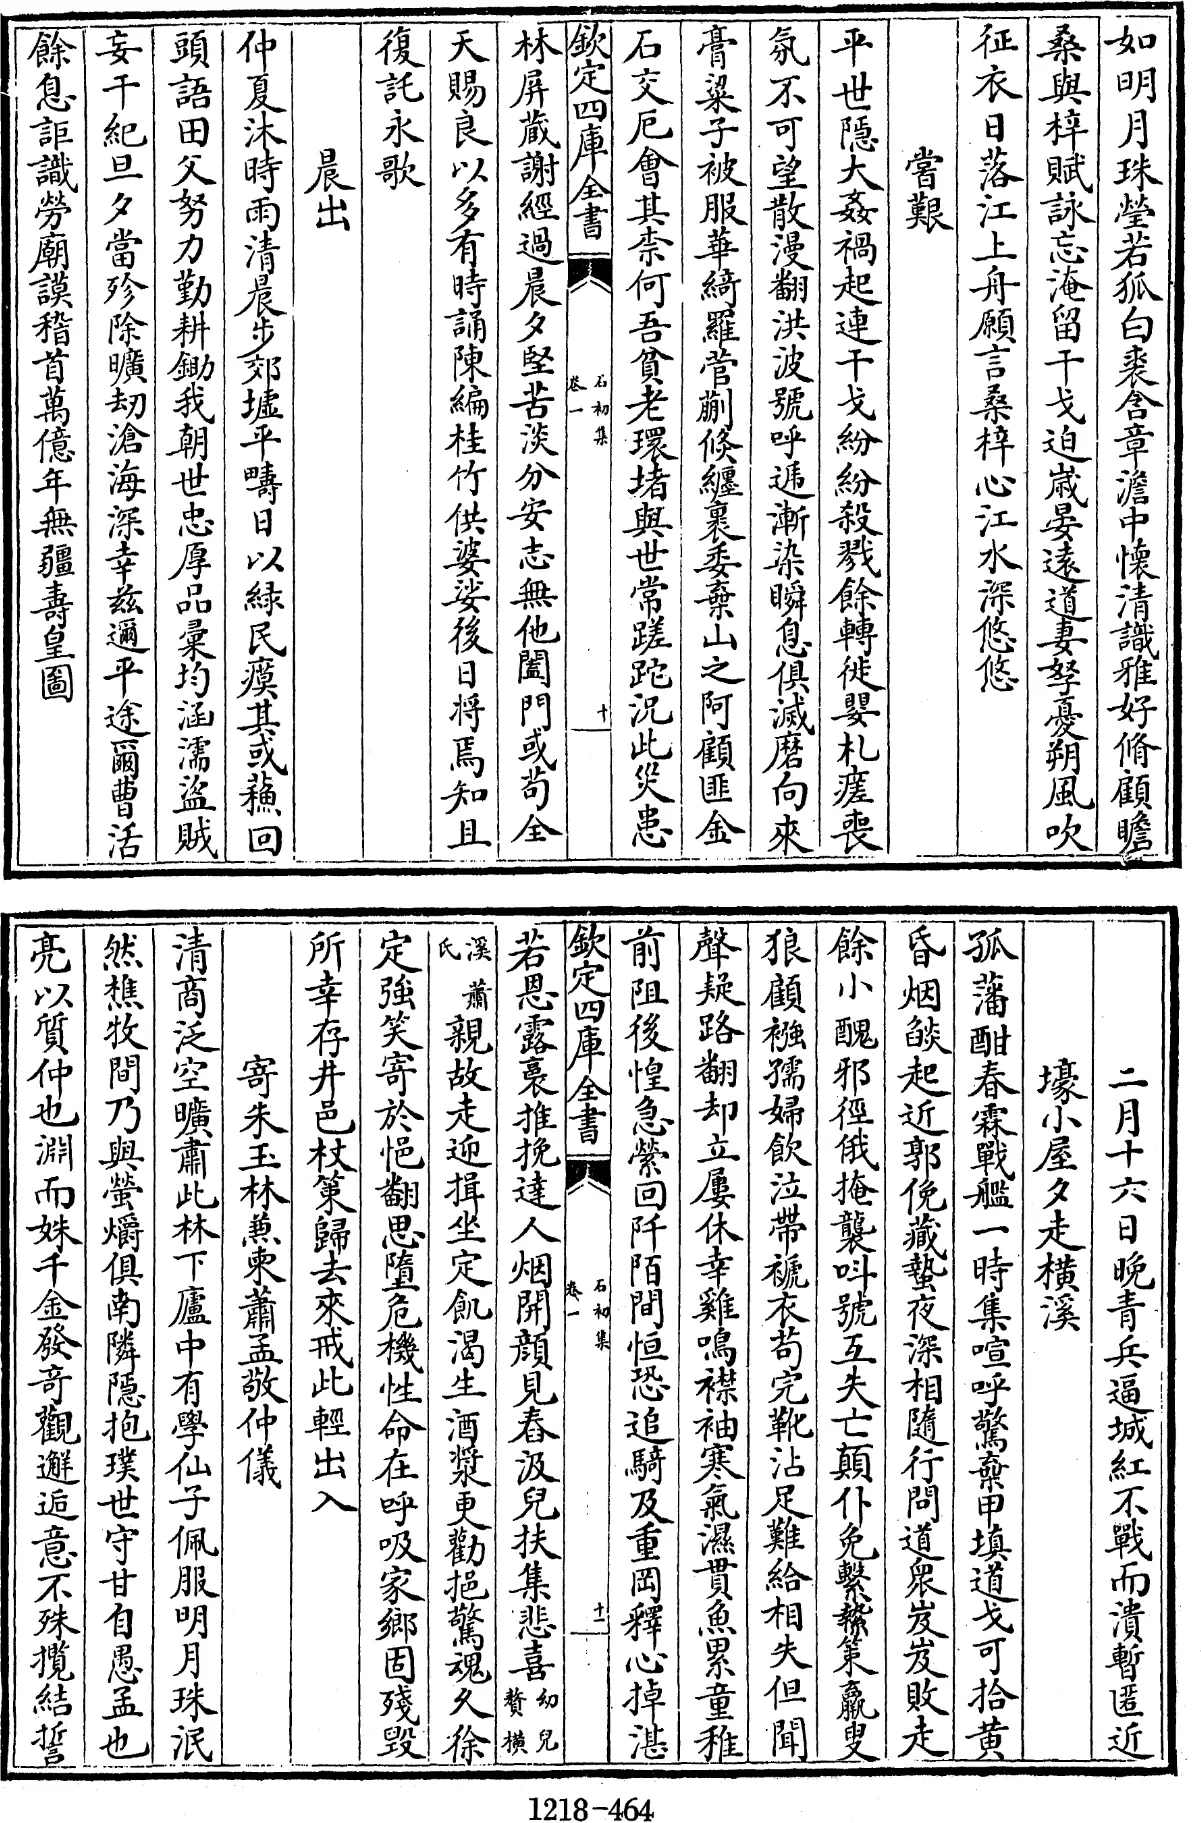 如明月珠瑩若狐白裘含章澹中懷清識雅好脩顧瞻
桑與梓賦詠忘淹留干戈迫嵗晏遠道妻孥憂朔風吹
征衣日落江上舟願言桑梓心江水深悠悠
嘗艱
平世隱大姦禍起連干戈紛紛殺戮餘轉徙嬰札瘥喪
氛不可望散漫翻洪波號呼遞漸染瞬息俱滅磨向來
膏粱子被服華綺羅菅蒯倏纏裹委棄山之阿顧匪金
石交厄會其柰何吾貧老環堵與世常蹉跎況此災患
欽定四庫全書
石初集
卷一
十
林屏蔵謝經過晨夕堅苦淡分安志無他闔門或苟全
天賜良以多有時誦陳編桂竹供婆娑後日將焉知且
復託永歌
晨出
仲夏沐時雨清晨步郊墟平疇日以緑民瘼其或穌回
頭語田父努力勤耕鋤我朝世忠厚品彙均涵濡盜賊
妄干紀旦夕當殄除曠刼滄海深幸兹邇平途爾曹活
餘息詎識勞廟謨稽首萬億年無疆壽皇圖
二月十六日晚青兵逼城紅不戰而潰暫匿近
壕小屋夕走橫溪
孤藩酣春霖戰艦一時集喧呼驚棄甲填道戈可拾黄
昏烟燄起近郭俛藏蟄夜深相隨行問道衆岌岌敗走
餘小醜邪徑俄掩襲呌號互失亡顛仆免繫縶策羸叟
狼顧襁孺婦飲泣帶褫衣苟完靴沾足難給相失但聞
聲疑路翻却立屢休幸雞鳴襟袖寒氣濕貫魚累童稚
前阻後惶急縈回阡陌間恒恐追騎及重岡釋心掉湛
欽定四庫全書
石初集
卷一
十一
若恩露裛推挽達人烟開顔見舂汲兒扶集悲喜幼兒贅橫
溪蕭氏親故走迎揖坐定飢渴生酒漿更勸挹驚魂久徐
定強笑寄於悒翻思墮危機性命在呼吸家鄉固殘毀
所幸存井邑杖策歸去來戒此輕出入
寄朱玉林兼柬蕭孟敬仲儀
清商泛空曠肅此林下廬中有學仙子佩服明月珠泯
然樵牧間乃與螢爝俱南隣隱抱璞世守甘自愚孟也
亮以質仲也淵而姝千金發奇觀邂逅意不殊攬結誓
1218-464